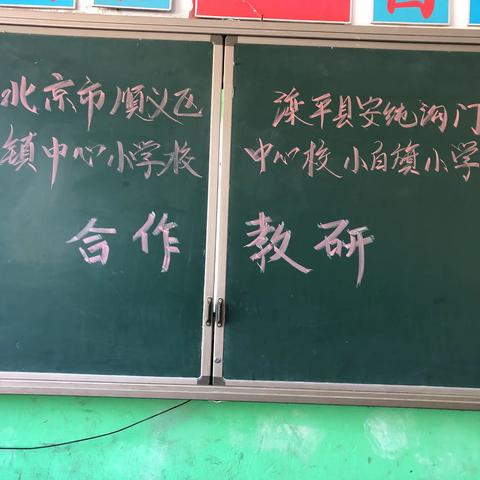 北京市顺义区
镇中心小学校
滦平县安纯沟门
中心校小白旗小学
合作教研